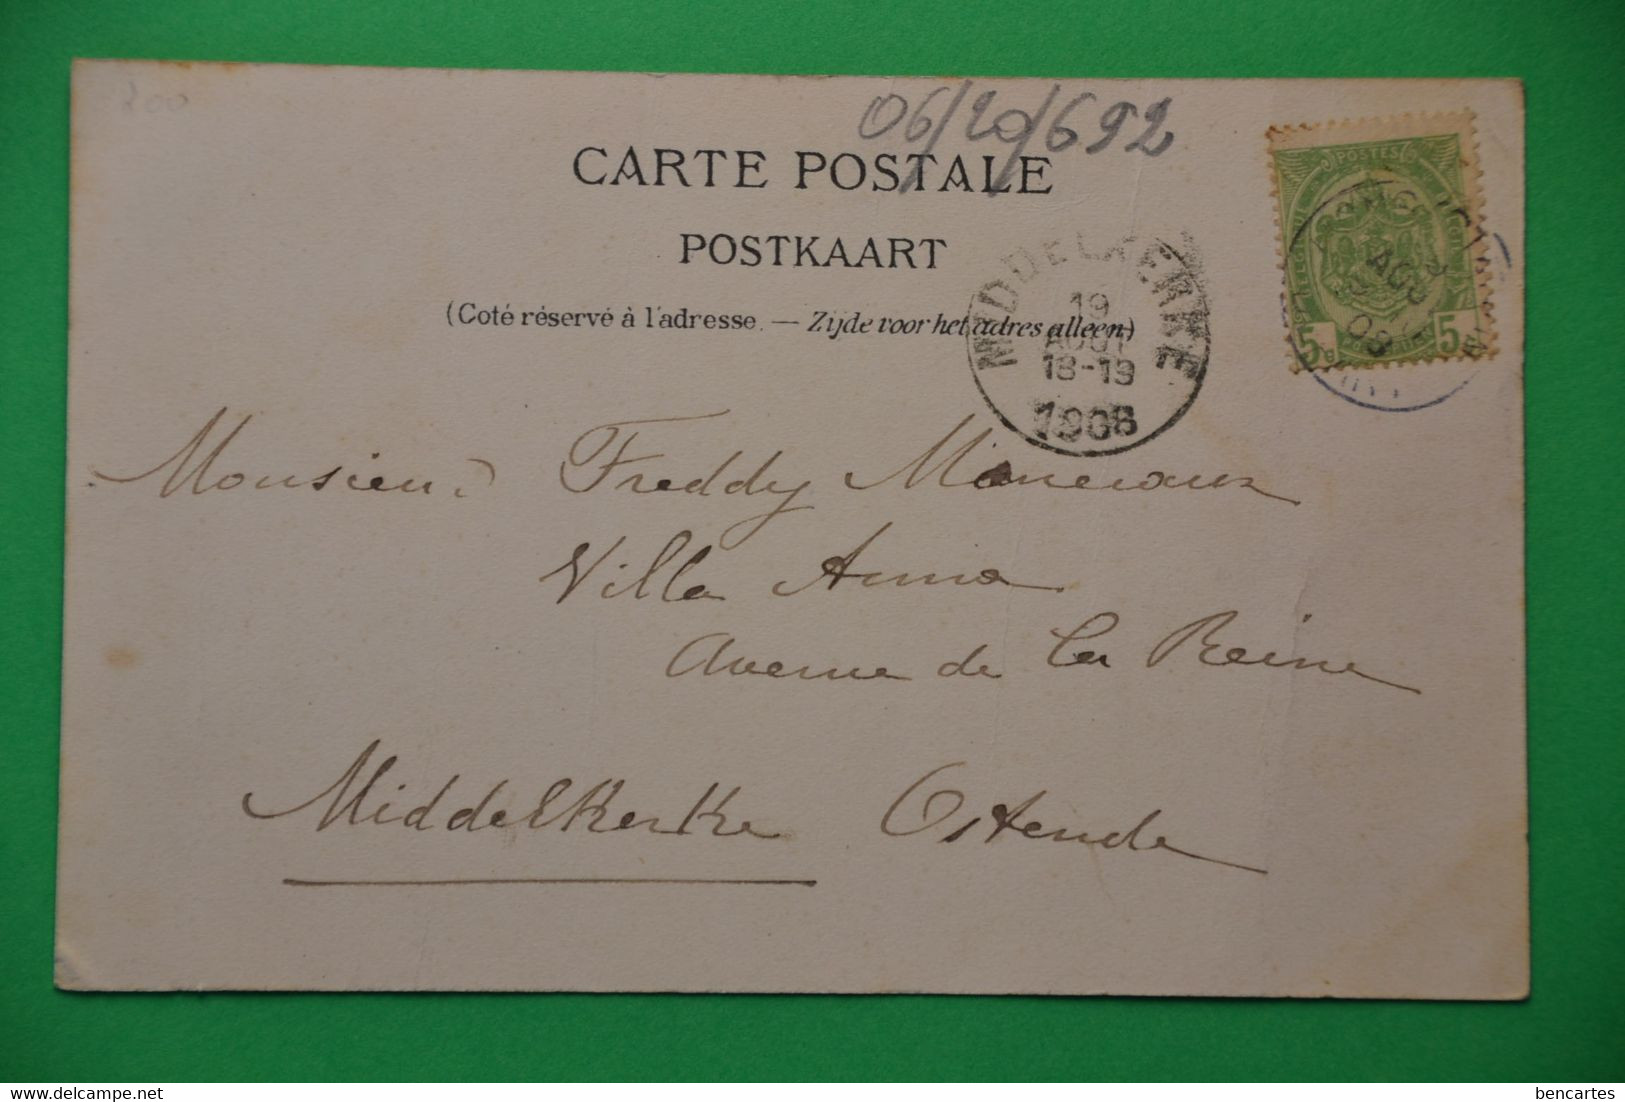 200
06/20/692
CARTE POSTALE
POSTKAART
(Coté réservé à l'adresse. — Zijde voor het adres alleen)
MIDDELKERKE
19
AOUT
18-19
1908
POSTES
5 5
Monsieur Freddy
Villa Anna
Avenue de La Reine
Middelkerke Ostende
delcampe.net
bencartes